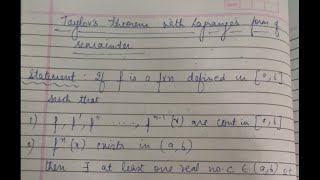 Taylor's Theorem with Lagranges form of
remainder
Statement : If f is a fxn defined in [a, b]
such that
1) f, f', f'' ......., f^n-1 (x) are cont in [a, b]
2) f^n (x) exists in (a, b)
then ∃ at least one real no c ∈ (a, b) st